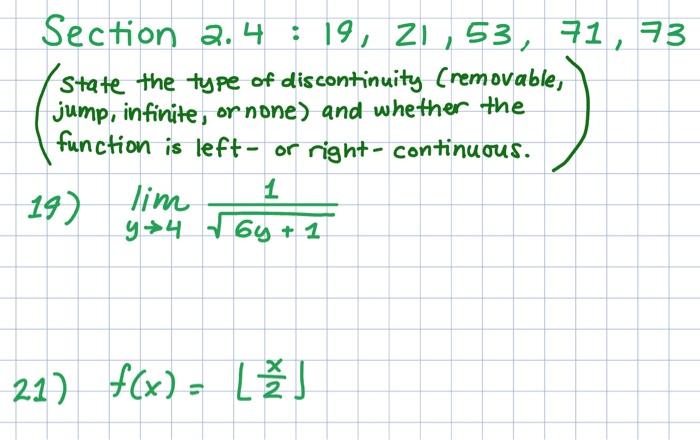 Section 2.4 : 19, 21, 53, 71, 73
(State the type of discontinuity (removable,
jump, infinite, or none) and whether the
function is left- or right-continuous.)
19) lim y→4 1/√(6y + 1)
21) f(x) = ⌊x/2⌋